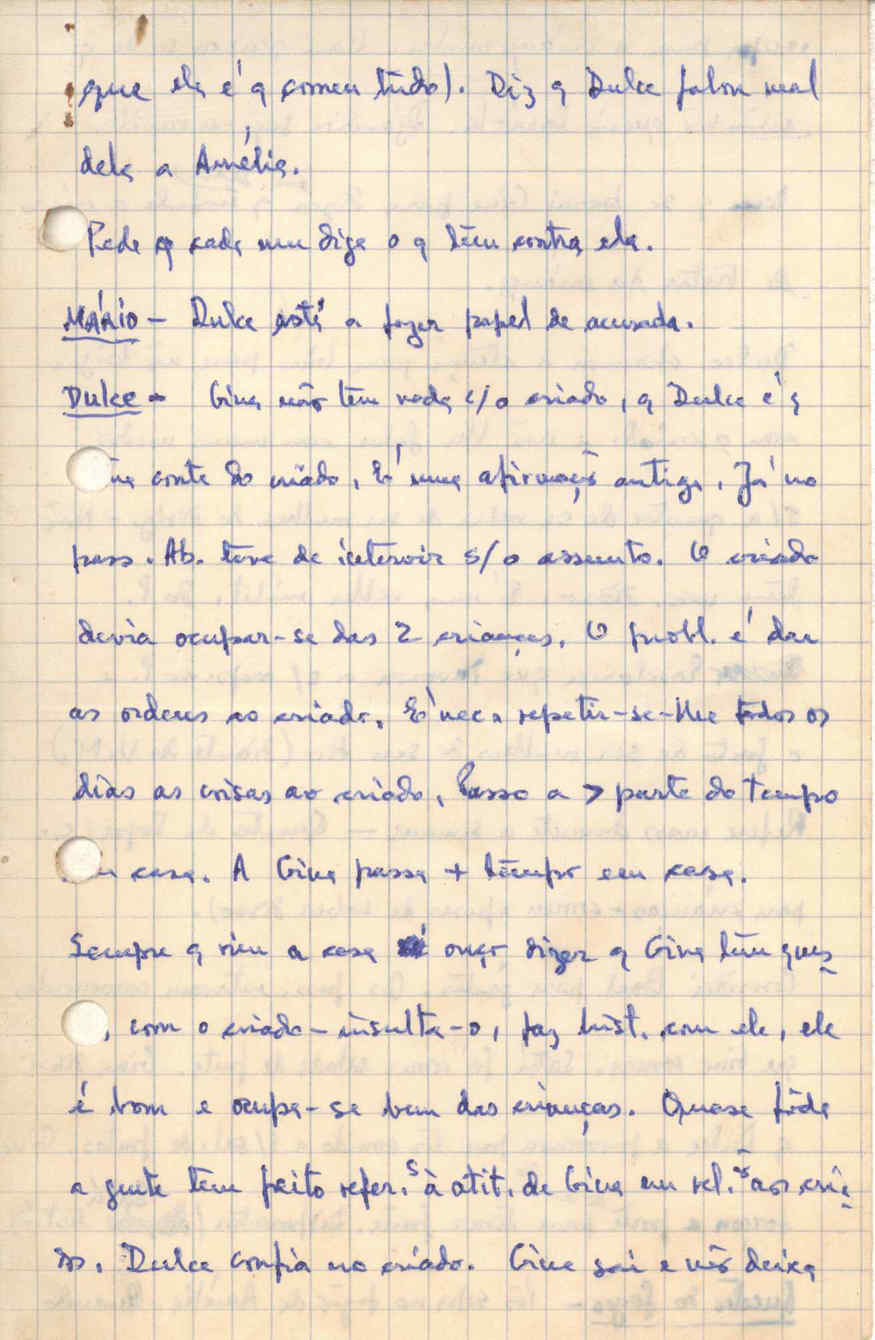 que ela é q comeu tudo). Diz q Dulce falou mal
dela a Amélia.
Pede q cada um diga o q têm contra ela.
MÁRIO – Dulce está a fazer papel de acusada.
DULCE – Gina não tem nada c/o criado, q Dulce é q
conta do criado, É uma afirmação antiga. Já no
pass. Ab. teve de intervir s/o assunto. O criado
devia ocupar-se das 2 crianças. O probl. é dar
as ordens ao criado. É nec. repetir-se-lhe todos os
dias as coisas ao criado. Passo a > parte do tempo
casa. A Gina passa + tempo em casa.
Sempre q vim a casa ouço dizer q Gina tem ques
, com o criado – insulta-o, faz hist. com ele, ele
é bom e ocupa-se bem das crianças. Quase tôda
a gente tem feito refer.s à atit. de Gina em rel.ão aos cria
os. Dulce confia no criado. Gina sai e não deixa